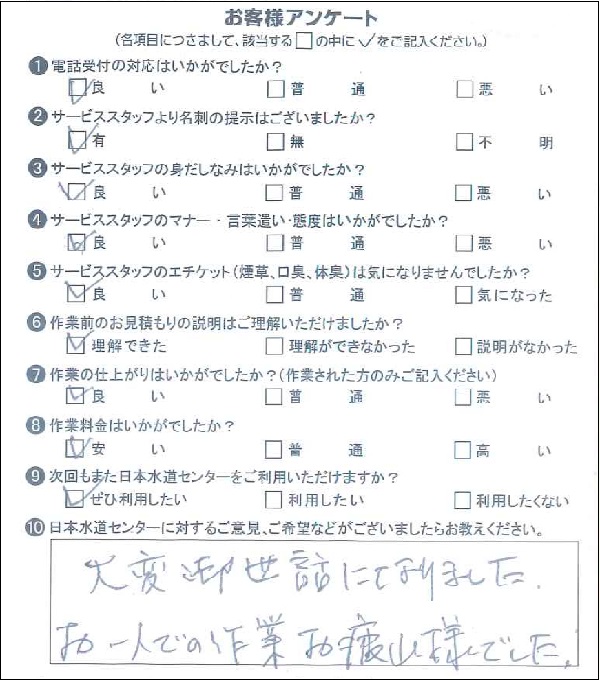 お客様アンケート
(各項目につきまして、該当する□の中に✓をご記入ください。)
❶電話受付の対応はいかがでしたか?
☑良い □普通 □悪い
❷サービススタッフより名刺の提示はございましたか?
☑有 □無 □不明
❸サービススタッフの身だしなみはいかがでしたか?
☑良い □普通 □悪い
❹サービススタッフのマナー・言葉遣い・態度はいかがでしたか?
☑良い □普通 □悪い
❺サービススタッフのエチケット(煙草、口臭、体臭)は気になりませんでしたか?
☑良い □普通 □気になった
❻作業前のお見積もりの説明はご理解いただけましたか?
☑理解できた □理解ができなかった □説明がなかった
❼作業の仕上がりはいかがでしたか?(作業された方のみご記入ください)
☑良い □普通 □悪い
❽作業料金はいかがでしたか?
☑安い □普通 □高い
❾次回もまた日本水道センターをご利用いただけますか?
☑ぜひ利用したい □利用したい □利用したくない
❿日本水道センターに対するご意見、ご希望などがございましたらお教えください。
大変御世話になりました。
お一人での作業お疲れ様でした。